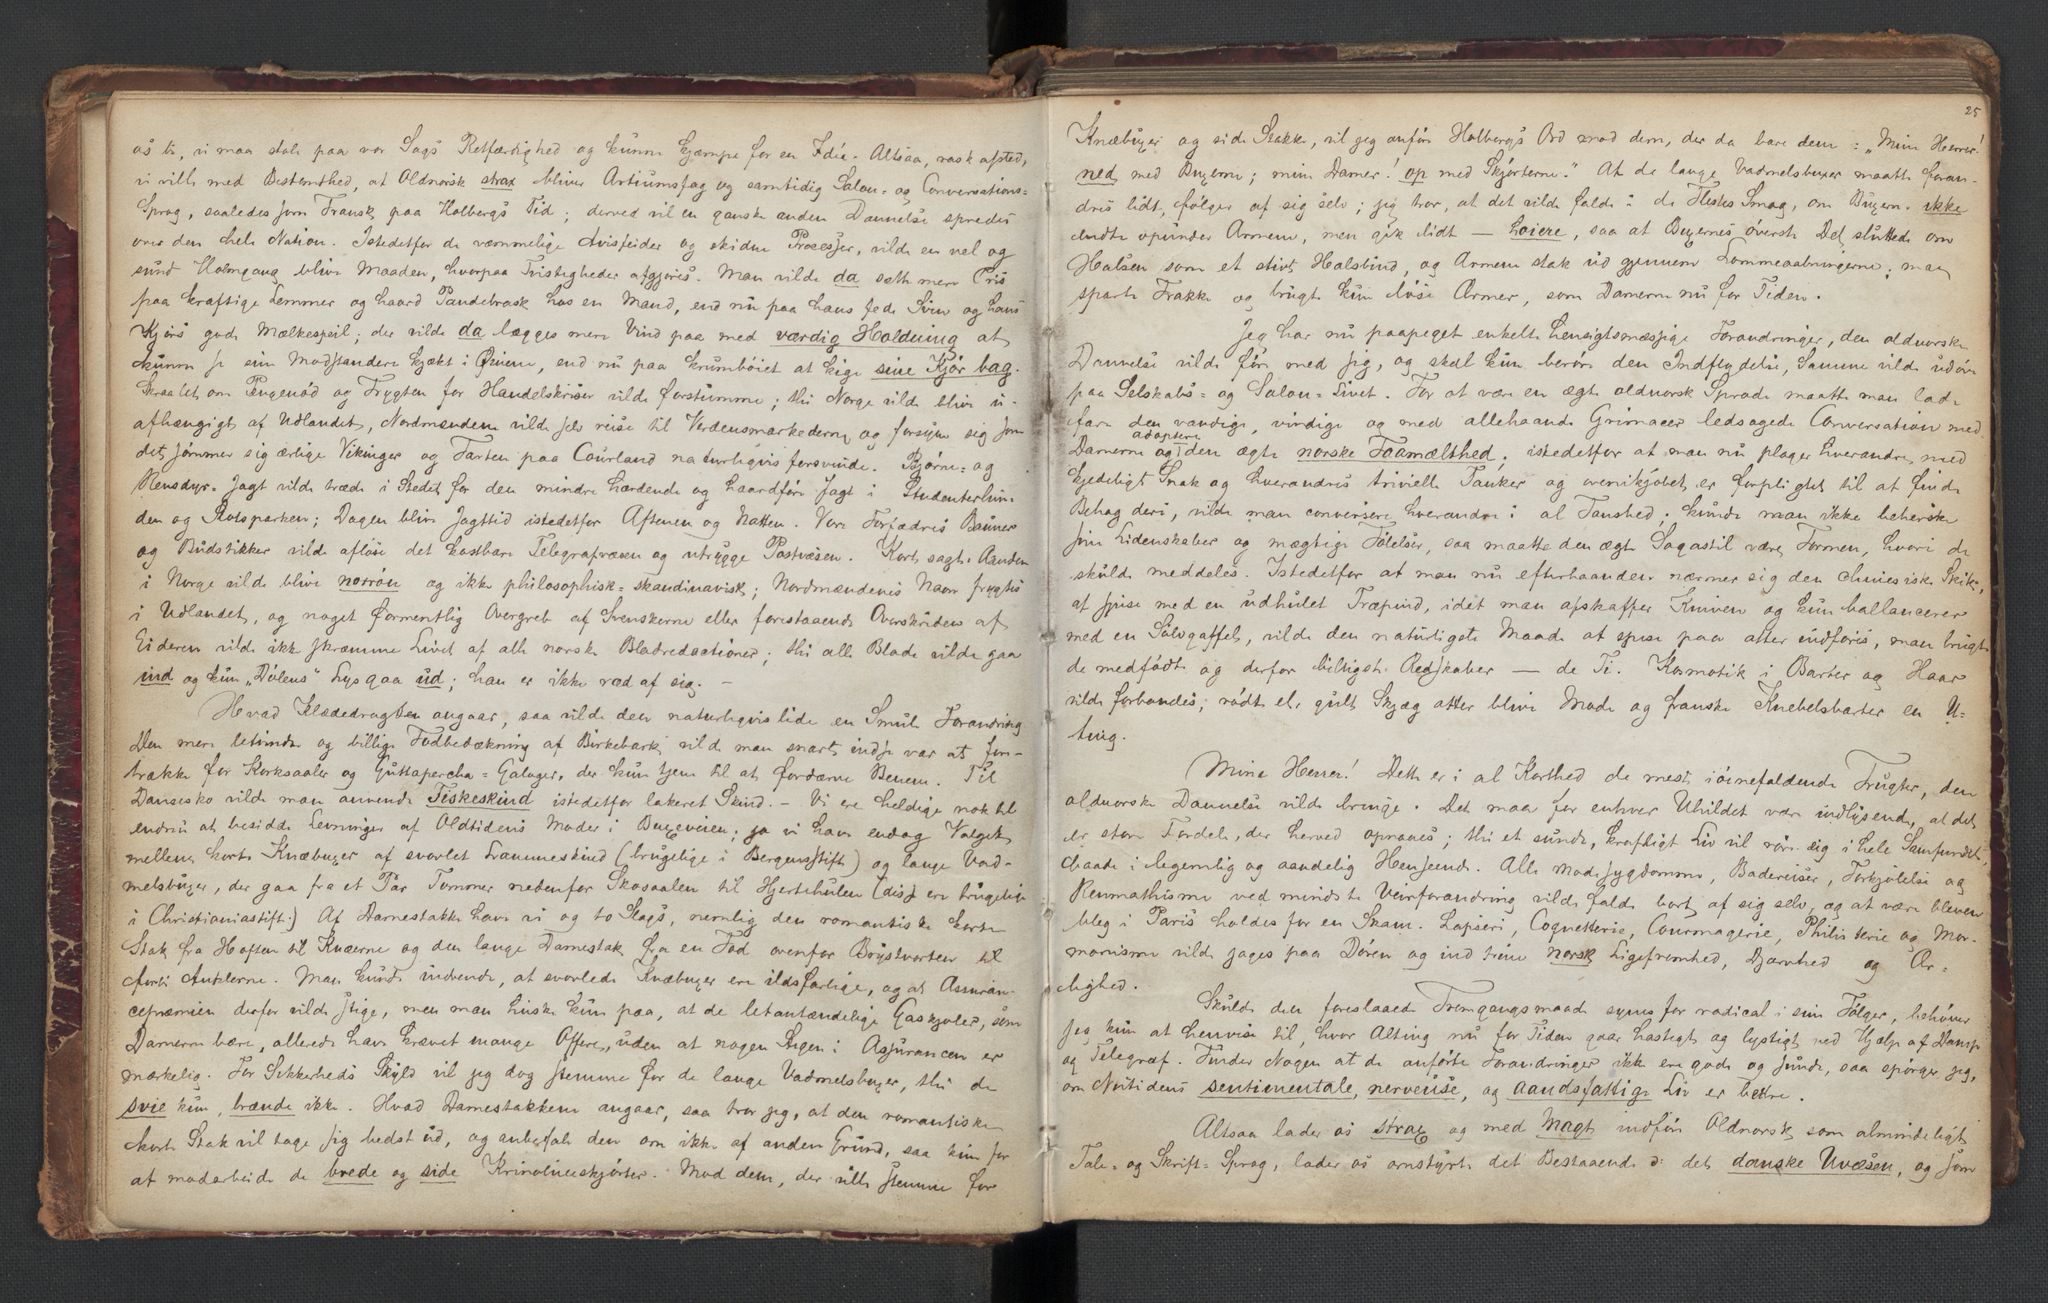 os ti, vi maa stole paa vor Sags Retfærdighed og kunne kjæmpe for en Idée. Altsaa, rask afsted,
vi ville med Bestemthed, at Oldnorsk strax bliver Artiumsfag og samtidig Salon- og Conversations-
Sprog, saaledes som Fransk paa Holbergs Tid; derved vil en ganske anden Dannelse spredes
over den hele Nation. Istedetfor de væmmelige Avisfeider og skidne Processer, vilde en vel og
sund Holmgang blive Maaden, hvorpaa Tvistigheder afgjøres. Man vilde da sætte mere Pris
paa kraftige Lemmer og haard Pandebrask hos en Mand, end nu paa hans fede Sviin og hans
Kjørs gode Mælkespeil; der vilde da lægges mere Vind paa med værdig Holdning at
kunne se sine Modstandere kjækt i Øinene, end nu paa krumbøiet at kige sine Kjør bag.
Skraalet om Pengenød og Frygten for Handelskriser vilde forstumme; thi Norge vilde blive u-
afhængigt af Udlandet, Nordmændene vilde selv reise til Verdensmarkederne og forsyne sig som
det sømmer sig ærlige Vikinger og Farten paa Courland naturligvis forsvinde. Bjørne- og
Rensdyr-Jagt vilde træde i Stedet for den mindre hærdende og haardføre Jagt i Studenterlun-
den og Slotsparken; Dagen blive Jagttid istedetfor Aftenen og Natten. Vore Forfædres Bauner
og Budstikker vilde afløse det kostbare Telegrafvæsen og utrygge Postvæsen. Kort sagt Aanden
i Norge vilde blive norrøn og ikke philosophisk-skandinavisk; Nordmændenes Navn frygtes
i Udlandet, og noget formentlig Overgreb af Svenskerne eller forestaaende Overskriden af
Eideren vilde ikke skræmme Livet af alle norske Bladredactioner; thi alle Blade vilde gaa
ind og kun „Dølens“ Lys gaa ud; han er ikke ræd af sig. –
Hvad Klædedragten angaar, saa vilde den naturligvis lide en Smule Forandring
Den mere letvindte og billige Fodbedækning af Birkebark vilde man snart indse var at fore-
trække for Korksaaler og Guttapercha-Galoger, der kun tjene til at fordærve Benene. Til
Dansesko vilde man anvende Fiskeskind istedetfor lakeret Skind. – Vi ere heldige nok til
endnu at besidde Levninger af Oldtidens Moder i Buxeveien; ja vi have endog Valget
mellem korte Knæbuxer af svovlet Lammeskind (brugelige i Bergensstift) og lange Vad-
melsbuxer, der gaa fra et Par Tommer nedenfor Skosaalen til Hjertehulen (disse ere brugelige
i Christianiastift.) Af Damestakke have vi og to Slags, nemlig den romantiske korte
Stak fra Hoften til Knæerne og den lange Damestak fra en Fod ovenfor Brystvorterne til
forbi Anklerne. Man kunde indvende, at svovlede Knæbuxer ere ildsfarlige, og at Assuran-
cepræmien derfor vilde stige, men man huske kun paa, at de letantændelige Gaskjoler, som
Damerne bære, allerede have krævet mange Offere, uden at nogen Stigen i Assurancen er
mærkelig. For Sikkerheds Skyld vil jeg dog stemme for de lange Vadmelsbuxer, thi de
svie kun, brænde ikke. Hvad Damestakkene angaar, saa tror jeg, at den romantiske
korte Stak vil tage sig bedst ud, og anbefale den om ikke af anden Grund, saa kun for
at modarbeide de brede og side Krinolineskjørter. Mod dem, der ville stemme for
25
Knæbuxer og side Stakke, vil jeg anføre Holbergs Ord mod dem, der da bare dem: „Mine Herrer!
ned med Buxerne; mine Damer! op med Skjørterne.“ At de lange Vadmelsbuxer maatte foran-
dres lidt, følger af sig selv; jeg tror, at det vilde falde i de Flestes Smag, om Buxerne ikke
endte opunder Armene, men gik lidt – høiere, saa at Buxernes øverste Del sluttede om
Halsen som et stivt Halsbind, og Armene stak ud gjennem Lommeaabningerne; man
sparte Frakke og brugte kun løse Ærmer, som Damerne nu for Tiden.
Jeg har nu paapeget enkelte hensigtsmæssige Forandringer, den oldnorske
Dannelse vilde føre med sig, og skal kun berøre den Indflydelse, Samme vilde udøve
paa Selskabs- og Salon-Livet. For at være en ægte oldnorsk Sprade maatte man lade
fare den vandige, vindige og med allehaande Grimacer ledsagede Conversation med
adoptere
Damerne og den ægte norske Faamælthed; istedetfor at man nu plager hverandre med
kjedeligt Snak og hverandres trivielle Tanker og ovenikjøbet er forpligtet til at finde
Behag deri, vilde man conversere hverandre i al Taushed; kunde man ikke beherske
sine Lidenskaber og mægtige Følelser, saa maatte den ægte Sagastil være Formen, hvori de
skulde meddeles. Istedetfor at man nu efterhaanden nærmer sig den chinesiske Skik,
at spise med en udhulet Træpind, idet man afskaffer Kniven og kun ballancerer
med en Sølvgaffel, vilde den naturligste Maade at spise paa atter indføres, man brugte
de medfødte og derfor billigste Redskaber – de Ti. Kosmetik i Barter og Haar
vilde forbandes; rødt el. gult Skjæg atter blive Mode og franske Knebelsbarter en U-
ting.
Mine Herrer! Dette er i al Korthed de mest iøinefaldende Frugter, den
oldnorske Dannelse vilde bringe. Det maa for enhver Uhildet være indlysende, at det
er store Fordele, der herved opnaaes; thi et sundt, kraftigt Liv vil røre sig i hele Samfundet,
baade i legemlig og aandelig Henseende. Alle Modesygdomme, Badereiser, Forkjølelse og
Reumathisme ved mindste Veirforandring vilde falde bort af sig selv, og at være bleven
bleg i Paris holdes for en Skam. Lapseri, Coquetterie, Courmagerie, Philisterie og Mor-
monisme vilde jages paa Døren og ind trine norsk Ligefremhed, Djærvhed og Ær-
lighed.
Skulde den foreslaaede Fremgangsmaade synes for radical i sine Følger, behøver
jeg kun at henvise til, hvor Alting nu for Tiden gaar hastigt og lystigt ved Hjelp af Damp
og Telegraf. Finder Nogen at de anførte Forandringer ikke ere gode og sunde, saa spørger jeg,
om Nutidens sentimentale, nerveuse, og aandsfattige Liv er bedre.
Altsaa lader os strax og med Magt indføre Oldnorsk som almindeligt
Tale- og Skrift-Sprog, lader os omstyrte det Bestaaende ɔ: det danske Uvæsen, og som